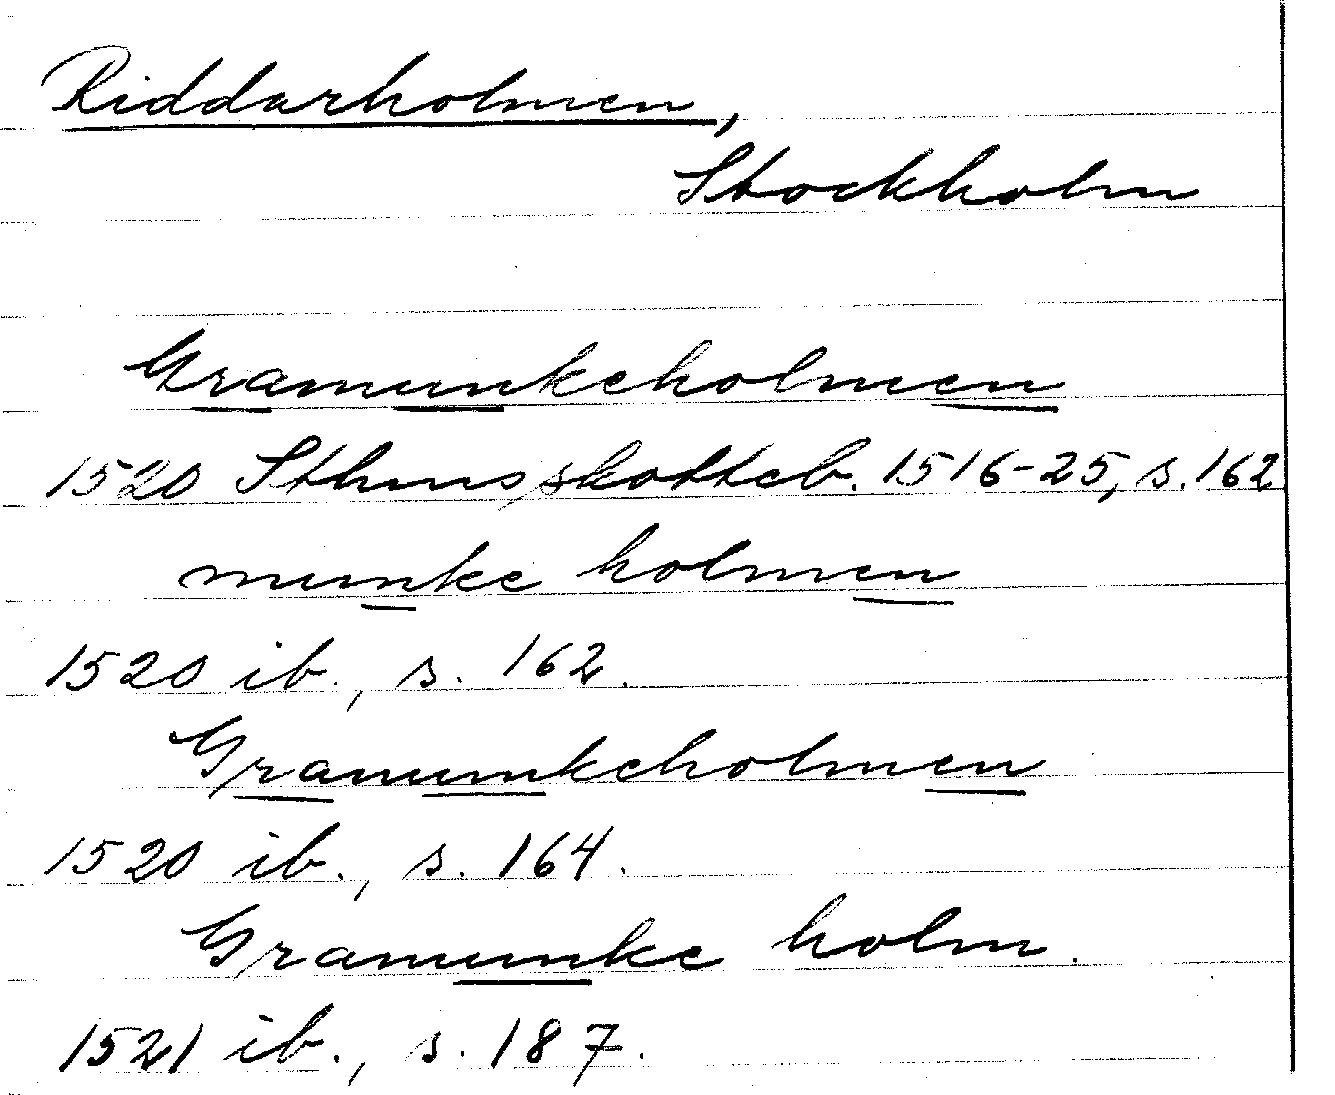 Riddarholmen,
Stockholm
Gramunkeholmen
1520 Sthms skotteb. 1516-25, s. 162
munke holmen
1520 ib., s. 162.
Gramunkeholmen
1520 ib., s. 164.
Gramunke holm.
1521 ib., s. 187.